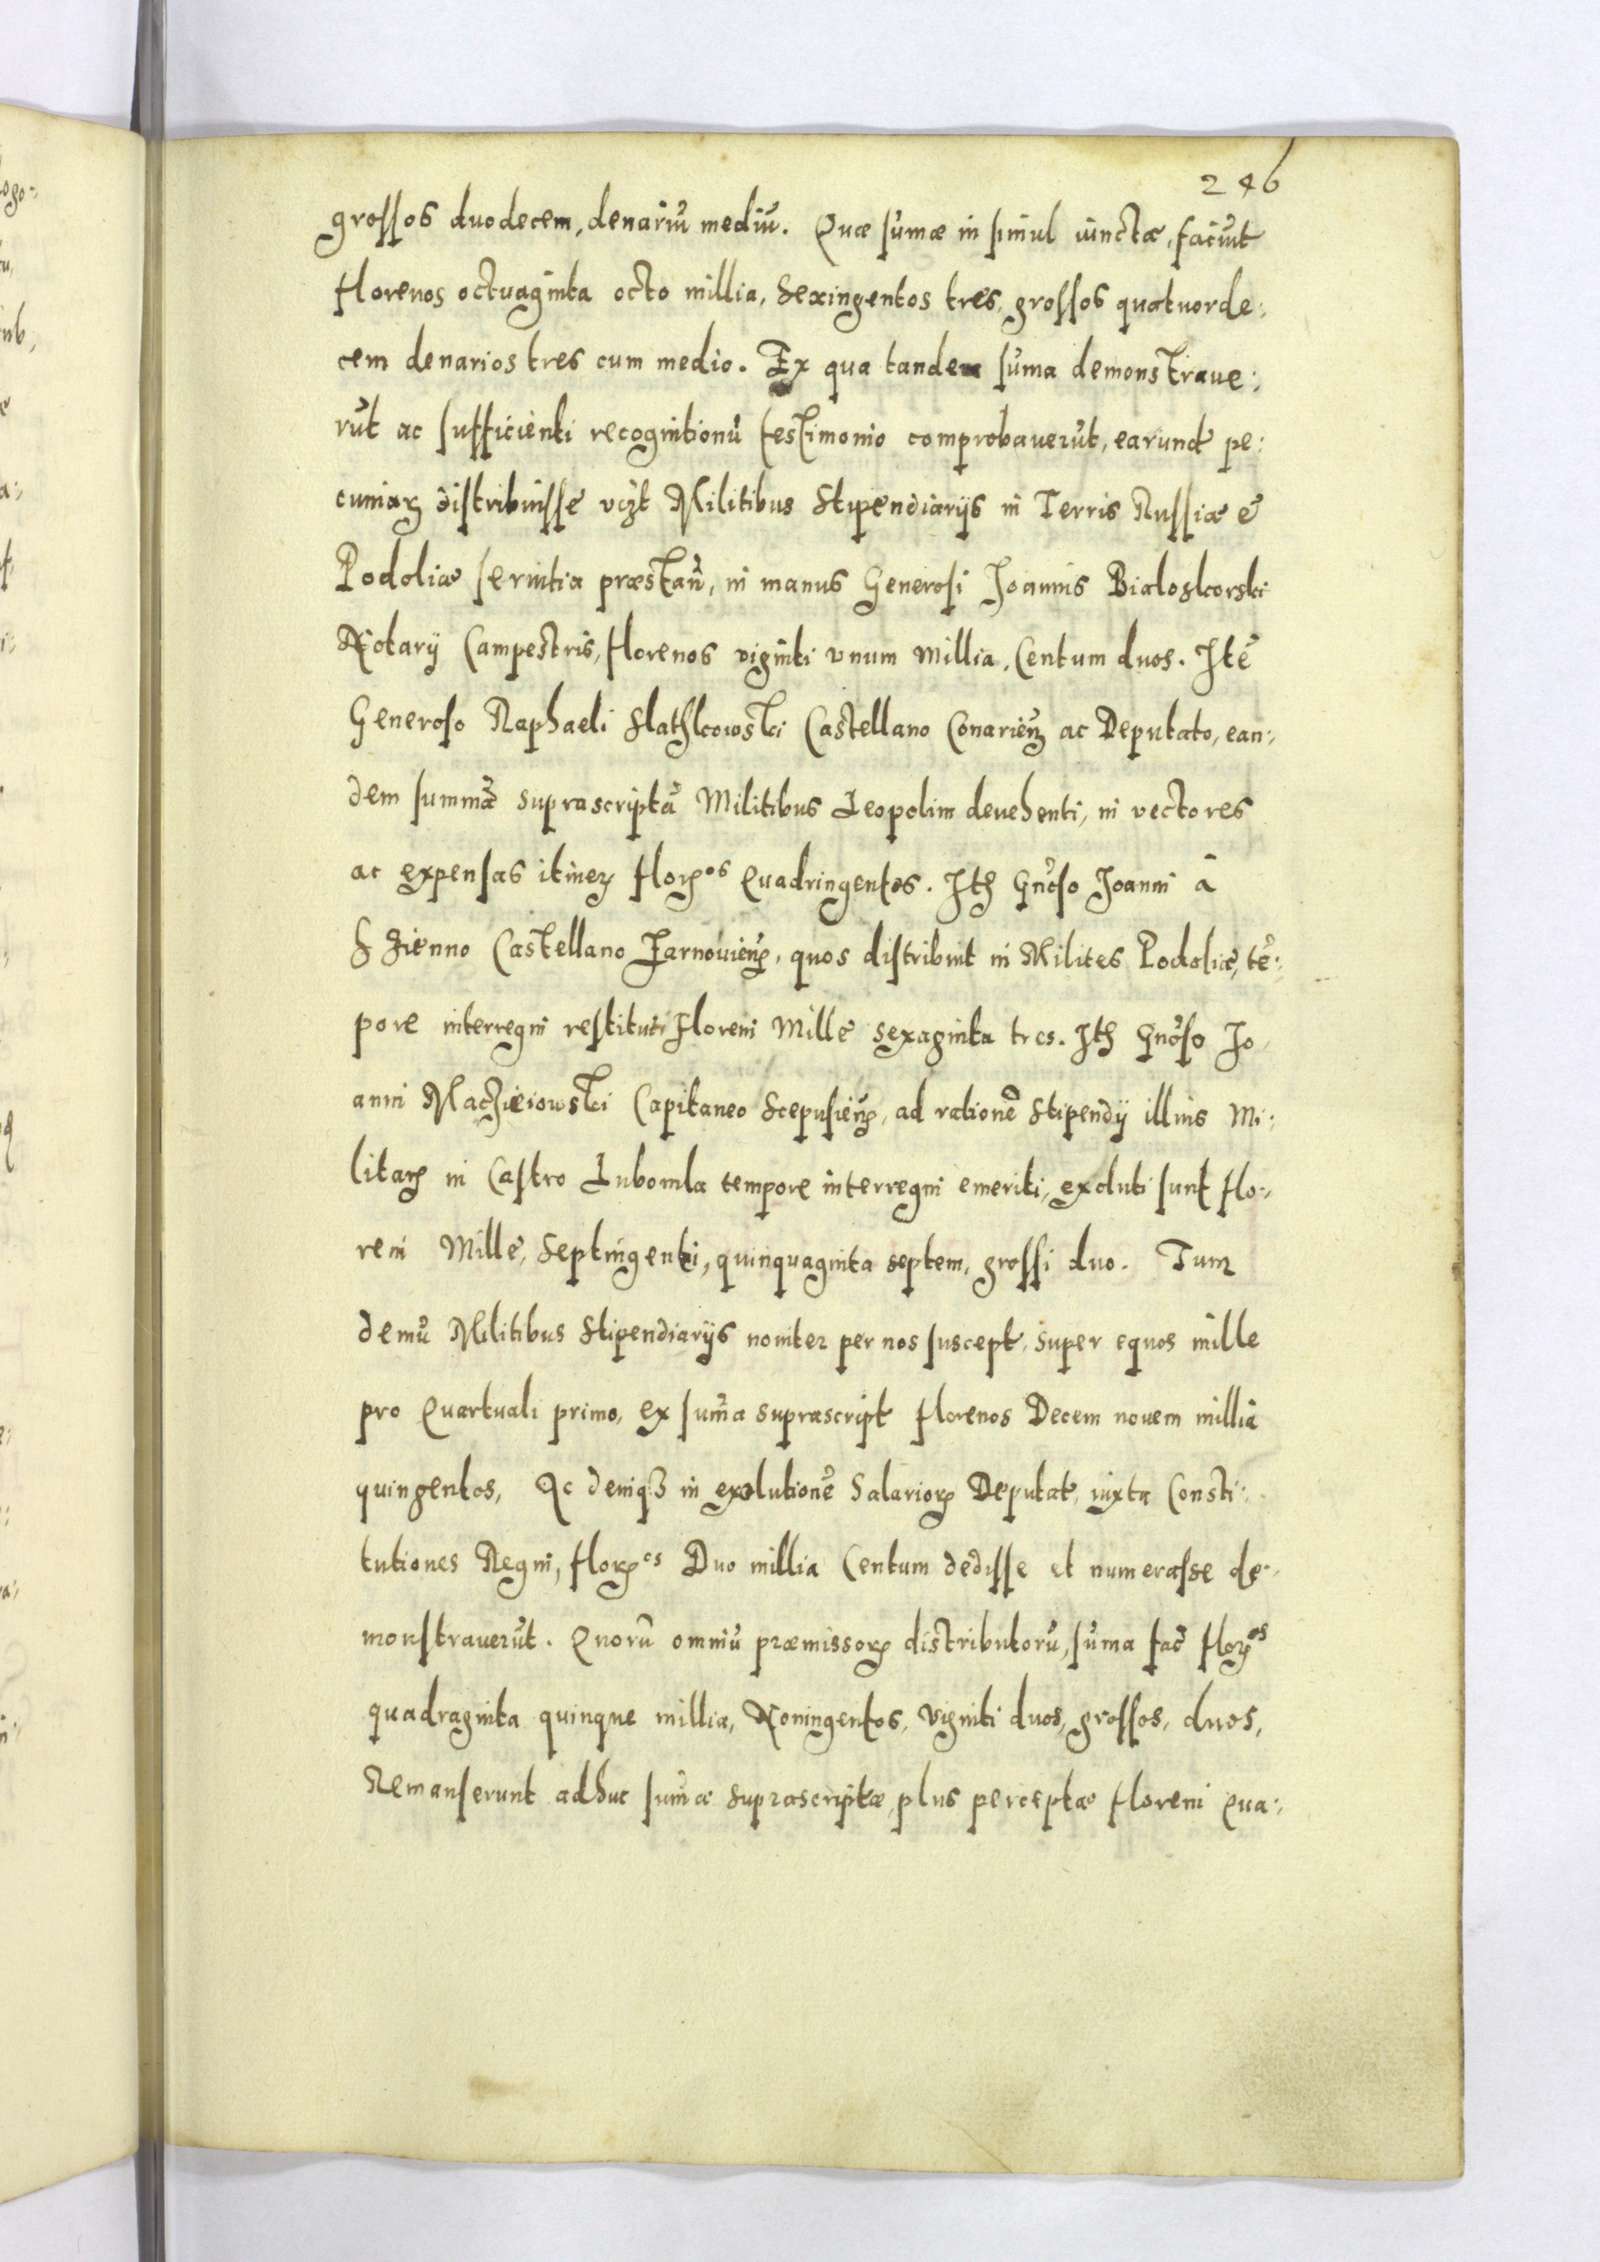 246
grossos duodecem, denariũ mediũ. Quæ sũmæ in simul iunctæ, faciũt
florenos octuaginta octo millia, Sexingentos tres, grossos quatuorde:
cem denarios tres cum medio. Ex qua tandem sũma demonstraue:
rũt ac sufficienti recognitionũ testimonio comprobauerũt, earund pe:
cuniaꝝ distribuisse vizt Militibus Stipendiarijs in Terris Russiæ et
Podoliæ seruitia præstañ, in manus Generosi Joannis Bialoskorski
Notarij Campestris, florenos viginti vnum Millia, Centum duos. Itẽ
Generoso Raphaeli Slathkowski Castellano Conarieñ ac Deputato, ean:
dem summã suprascriptã Militibus Leopolim deuehenti, in vectores
ac expensas itineꝝ floꝝos Quadringentos. Ith Gnõso Joanni à
Szienno Castellano Zarnouieñ, quos distribuit in Milites Podoliæ, tẽ:
pore interregni restituti Floreni Mille sexaginta tres. Ith Gnõso Jo
anni Maczieiowski Capitaneo Scepusieñ, ad rationẽ Stipendij illius Mi:
litarꝭ in Castro Lubomla tempore interregni emeriti, exoluti sunt Flo:
reni Mille, Septingenti, quinquaginta septem, grossi duo. Tum
demũ Militibus Stipendiarijs nouiter per nos suscept, super equos mille
pro Quartuali primo, ex sum̃a suprascript florenos Decem nouem millia
quingentos, Ac deniqꝫ in exolutionẽ Salarioꝝ Deputat, iuxta Consti:
tutiones Regni, floꝝos Duo millia Centum dedisse et numerasse de:
monstrauerũt. Quorũ omniũ præmissoꝝ distributorũ, sũma fac̃ floꝝos
quadraginta quinque millia, Noningentos, Viginti duos, grossos, duos,
Remanserunt adhuc sum̃æ suprascriptæ, plus perceptæ floreni Qua: